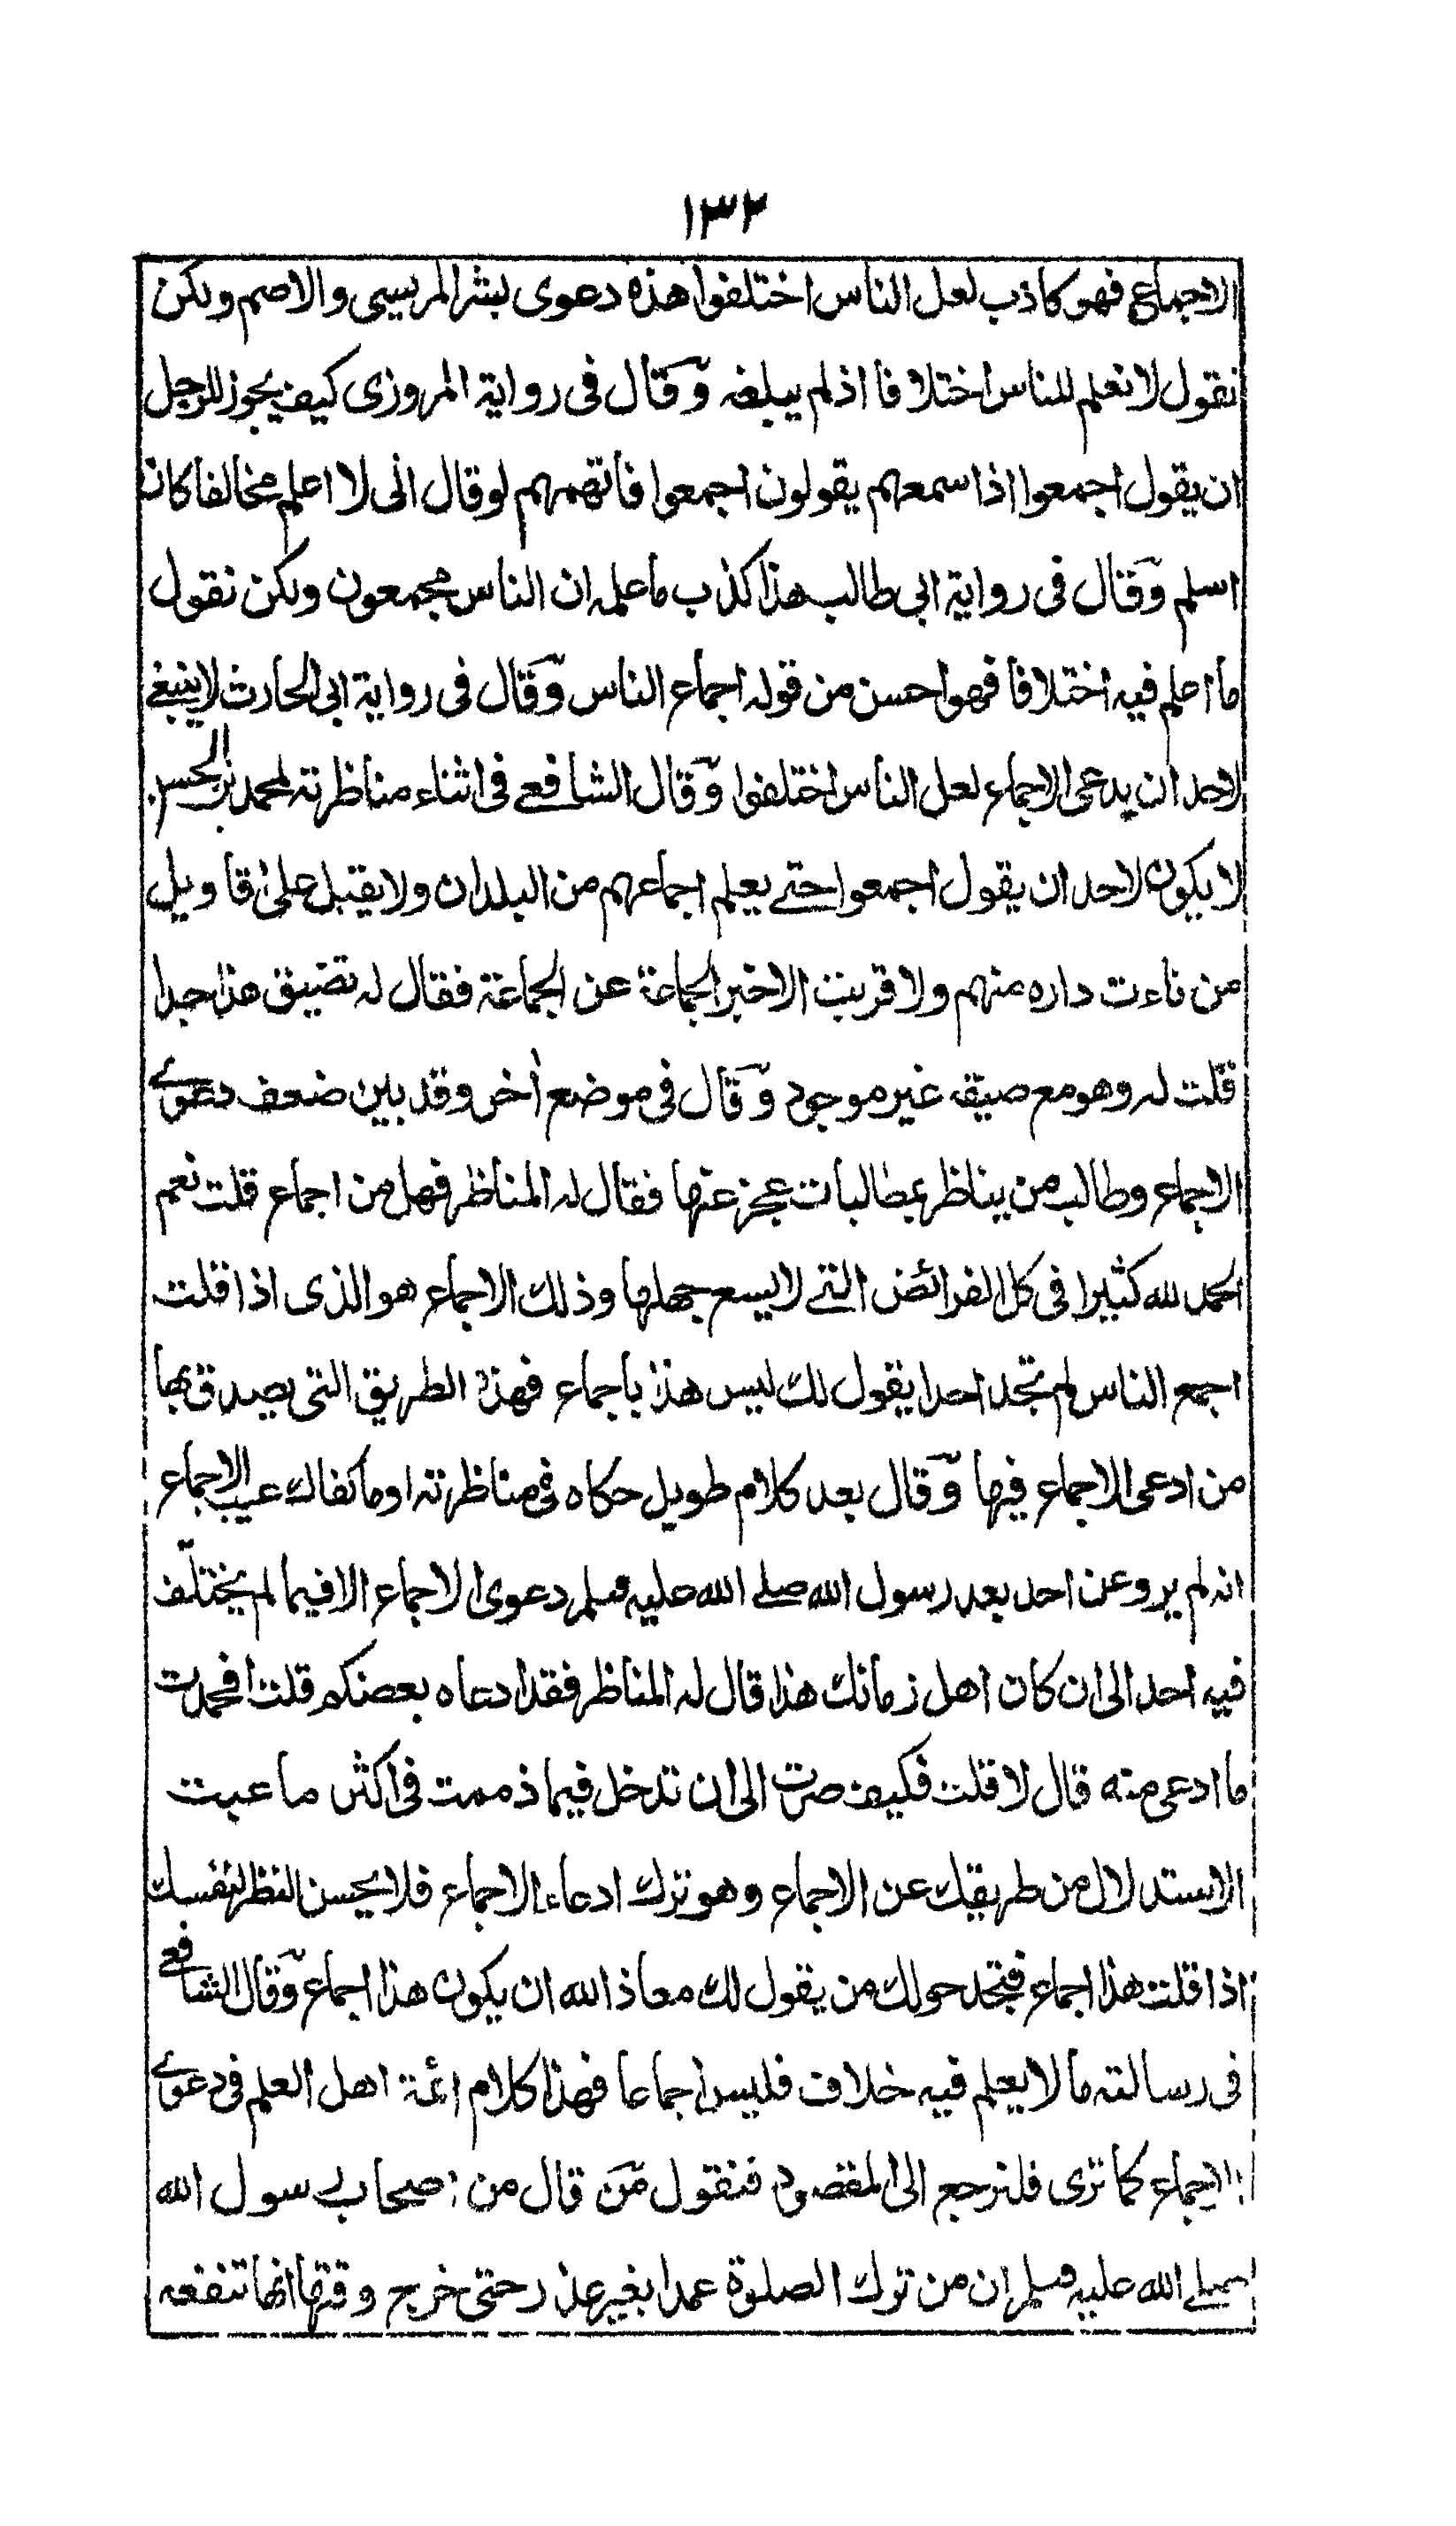 ١٣٢
الاجماع فهو كاذب لعل الناس اختلفوا هذه دعوى بشر المريسي والاصم ولكن
نقول لا نعلم للناس اختلافا اذ لم يبلغه وقال فى رواية المروزى كيف يجوز للرجل
ان يقول اجمعوا اذا سمعهم يقولون اجمعوا فاتهمهم لو قال انى لا اعلم مخالفا كان
اسلم وقال فى رواية ابى طالب هذا كذب ما علمه ان الناس مجمعون ولكن نقول
ما اعلم فيه اختلافا فهو احسن من قوله اجماع الناس وقال فى رواية ابى الحارث لا ينبغے
لاحد ان يدعى الاجماع لعل الناس اختلفوا وقال الشافعے فى اثناء مناظرته لمحمد بن الحسن
لا يكون لاحد ان يقول اجمعوا حتے يعلم اجماعهم من البلدان ولا يقبل على اقاويل
من ناءت داره منهم ولا قربت الا خبر الجماعة عن الجماعة فقال له تضيق هذا جدا
قلت له وهو مع ضيقه غير موجود وقال فى موضع أخر وقد بين ضعف دعوے
الاجماع وطالب من يناظر بمطالبات عجز عنها فقال له المناظر فهل من اجماع قلت نعم
الحمد لله كثيرا فى كل الفرائض التے لا يسع جهلها وذلك الاجماع هو الذى اذا قلت
اجمع الناس لم تجد احدا يقول لك ليس هذا باجماع فهذه الطريق التى يصدق بها
من ادعى الاجماع فيها وقال بعد كلام طويل حكاه فى مناظرته اوما كفاك عيب الاجماع
انه لم يرو عن احد بعد رسول الله صلے الله عليه وسلم دعوى الاجماع الا فيما لم يختلف
فيه احد الى ان كان اهل زمانك هذا قال له المناظر فقد ادعاه بعضكم قلت افحمدت
ما ادعى منه قال لا قلت فكيف صرت الى ان تدخل فيما ذممت فى اكثر ما عبت
الاستدلال من طريقك عن الاجماع وهو ترك ادعاء الاجماع فلا يحسن النظر لنفسك
اذا قلت هذا اجماع فتجد حولك من يقول لك معاذ الله ان يكون هذا اجماع وقال الشافعے
فى رسالته ما لا يعلم فيه خلاف فليس اجماعا فهذا كلام ائمة اهل العلم فى دعوے
الاجماع كما ترى فلنرجع الى المقصود فنقول من قال من اصحاب رسول الله
صلے الله عليه وسلم ان من ترك الصلوة عمدا بغير عذر حتى خرج وقتها انها تنفعه